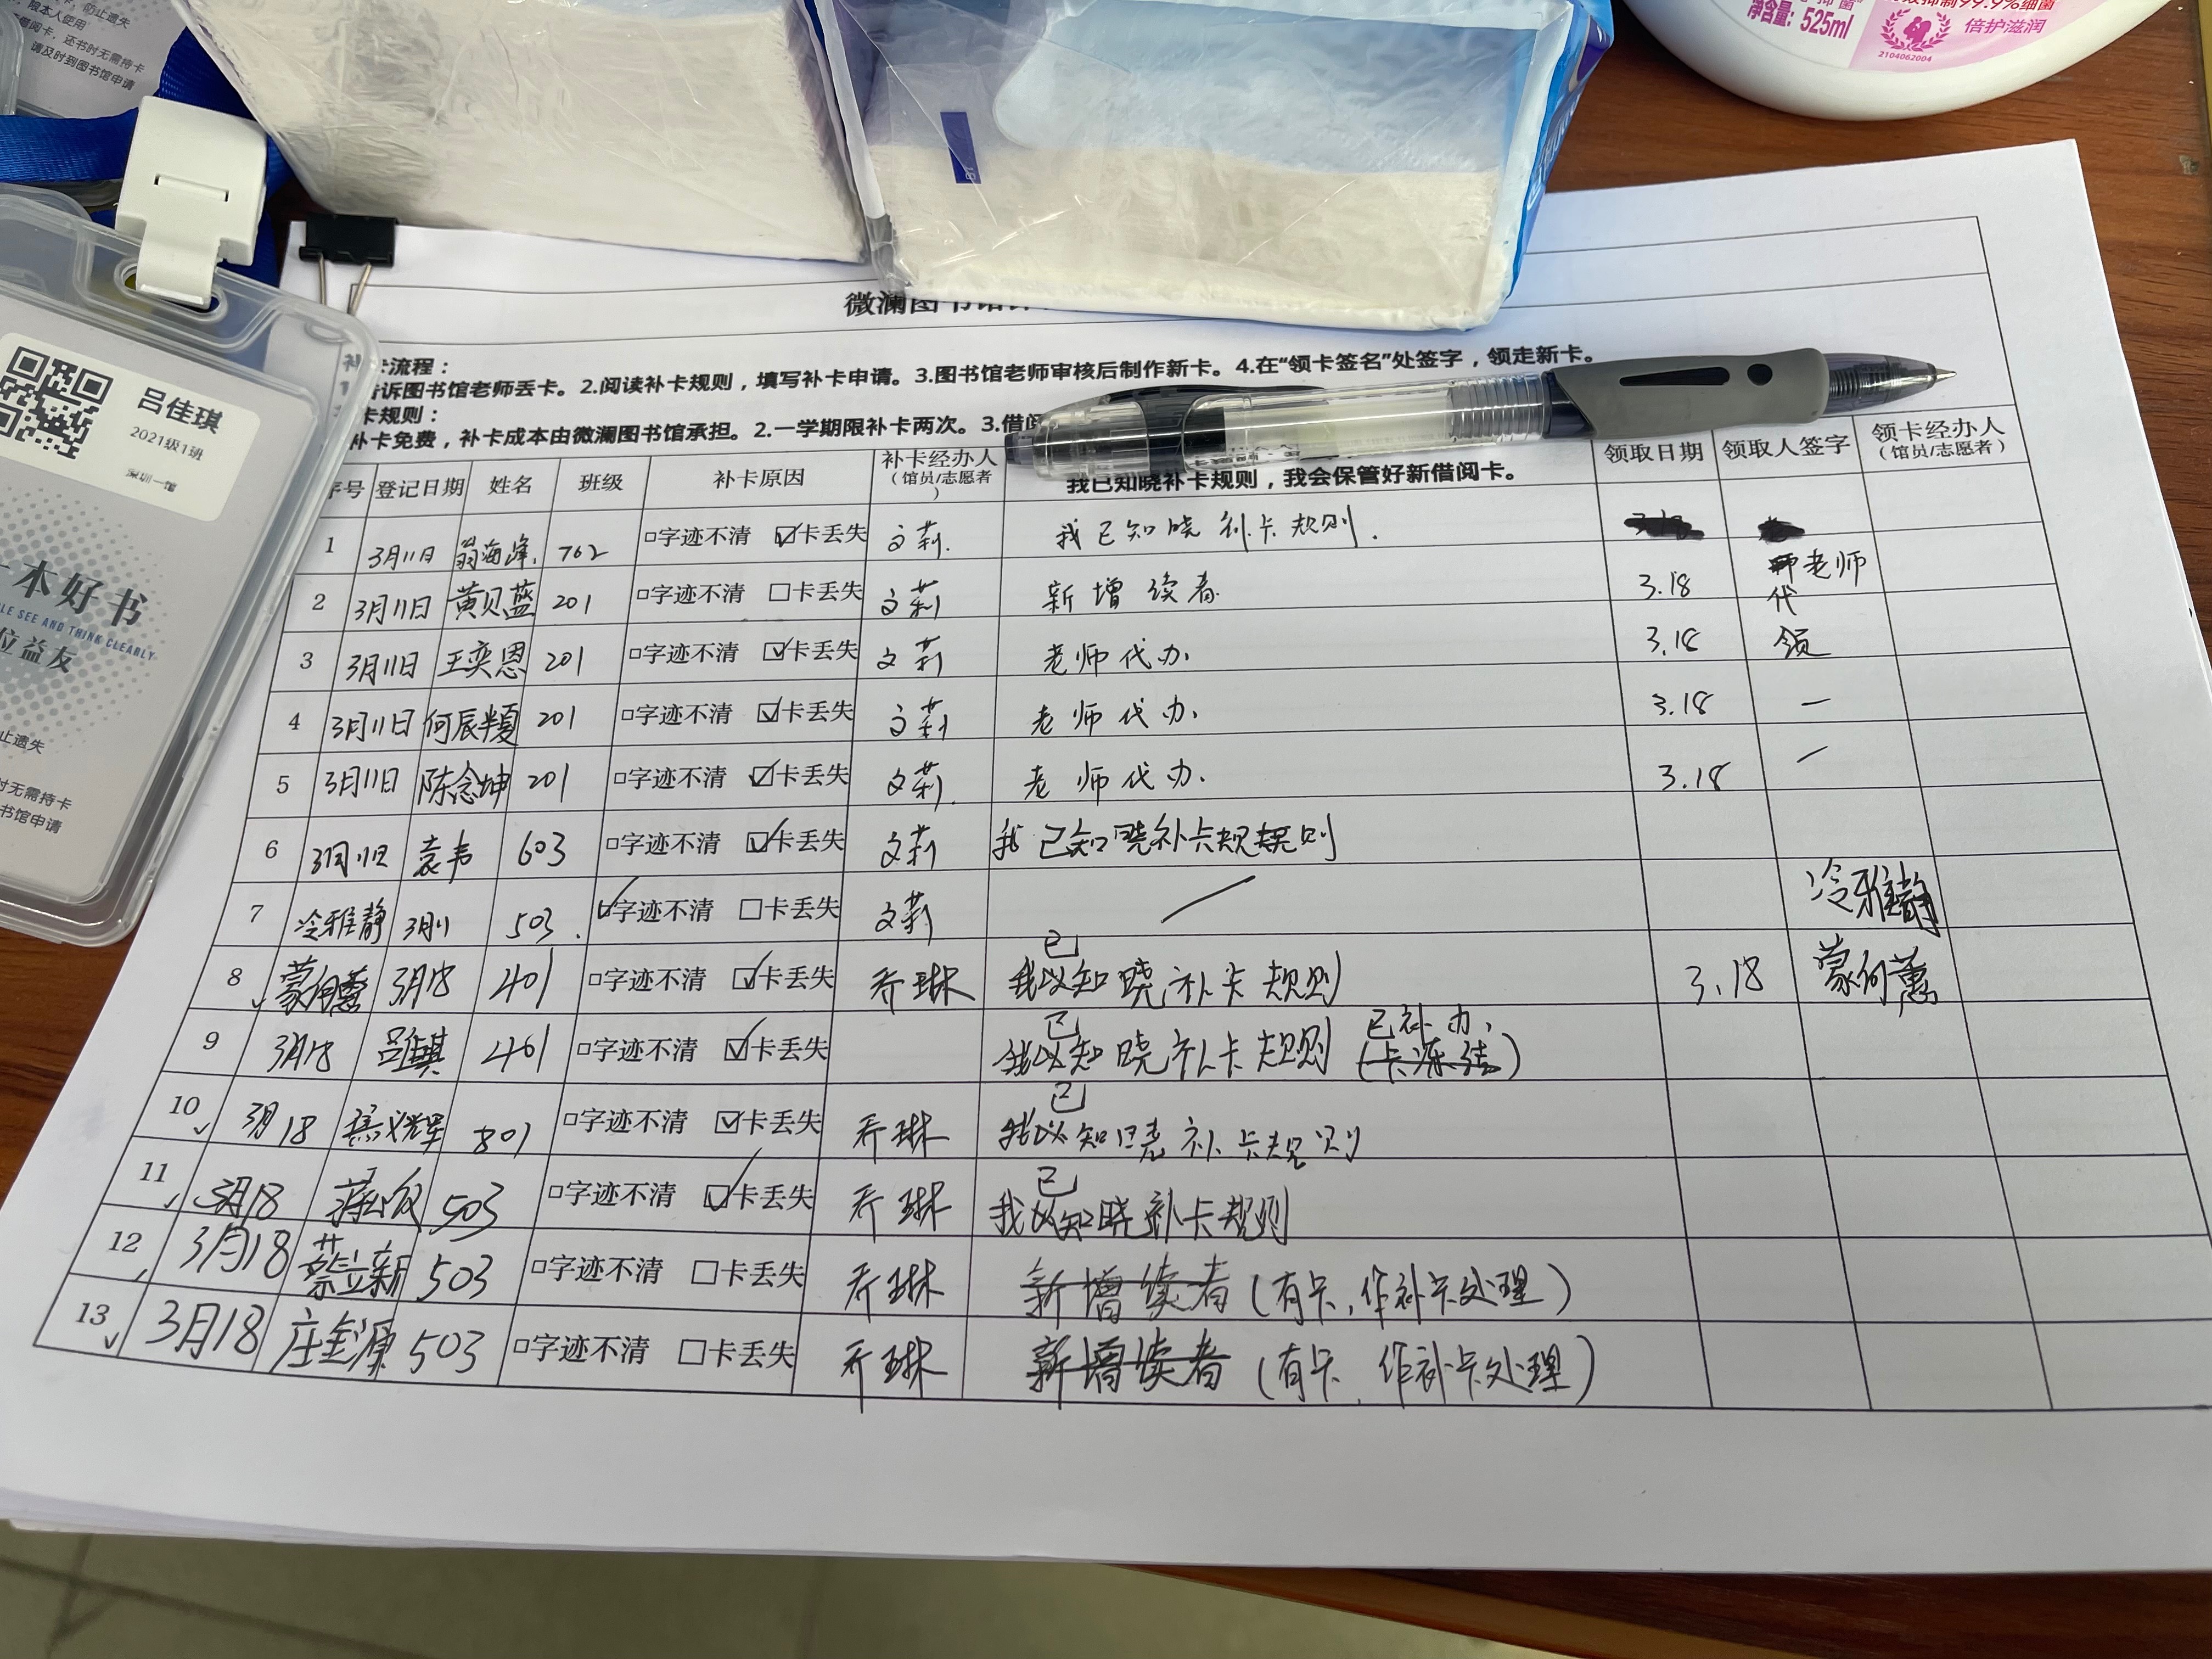 防止遗失
限本人使用
借阅卡，还书时无需持卡
请及时到图书馆申请
净含量: 525ml
抑制99.9%细菌
倍护滋润
2104062004
吕佳琪
2021级1班
深圳一馆
一本好书
LE SEE AND THINK CLEARLY
位益友
止遗失
时无需持卡
书馆申请
微澜图书馆
卡流程：
告诉图书馆老师丢卡。2.阅读补卡规则，填写补卡申请。3.图书馆老师审核后制作新卡。4.在“领卡签名”处签字，领走新卡。
卡规则：
补卡免费，补卡成本由微澜图书馆承担。2.一学期限补卡两次。3.借阅
序号 登记日期 姓名 班级 补卡原因 补卡经办人（馆员/志愿者） 我已知晓补卡规则，我会保管好新借阅卡。 领取日期 领取人签字 领卡经办人（馆员/志愿者）
1 3月11日 翁海峰 702 □字迹不清 ☑卡丢失 文莉. 我已知晓补卡规则.
2 3月11日 黄贝蓝 201 □字迹不清 □卡丢失 文莉 新增读者 3.18 老师代
3 3月11日 王奕恩 201 □字迹不清 ☑卡丢失 文莉 老师代办. 3.18 领
4 3月11日 何辰半夏 201 □字迹不清 ☑卡丢失 文莉 老师代办. 3.18 —
5 3月11日 陈念坤 201 □字迹不清 ☑卡丢失 文莉. 老师代办. 3.18 —
6 3月11日 袁韦 603 □字迹不清 ☑卡丢失 文莉 我已知晓补卡规则
7 冷雅静 3月11 503. ☑字迹不清 □卡丢失 文莉 / 冷雅静
8 蒙何蕙 3月18 401 □字迹不清 ☑卡丢失 乔琳 我已知晓补卡规则 3.18 蒙何蕙
9 3月18 吕佳琪 401 □字迹不清 ☑卡丢失 我已知晓补卡规则 已补办. (卡冻结)
10 3月18 801 □字迹不清 ☑卡丢失 乔琳 我已知晓补卡规则
11 3月18 503 □字迹不清 ☑卡丢失 乔琳 我已知晓补卡规则
12 3月18 蔡立新 503 □字迹不清 □卡丢失 乔琳 新增读者(有卡,作补卡处理)
13 3月18 庄金源 503 □字迹不清 □卡丢失 乔琳 新增读者(有卡,作补卡处理)